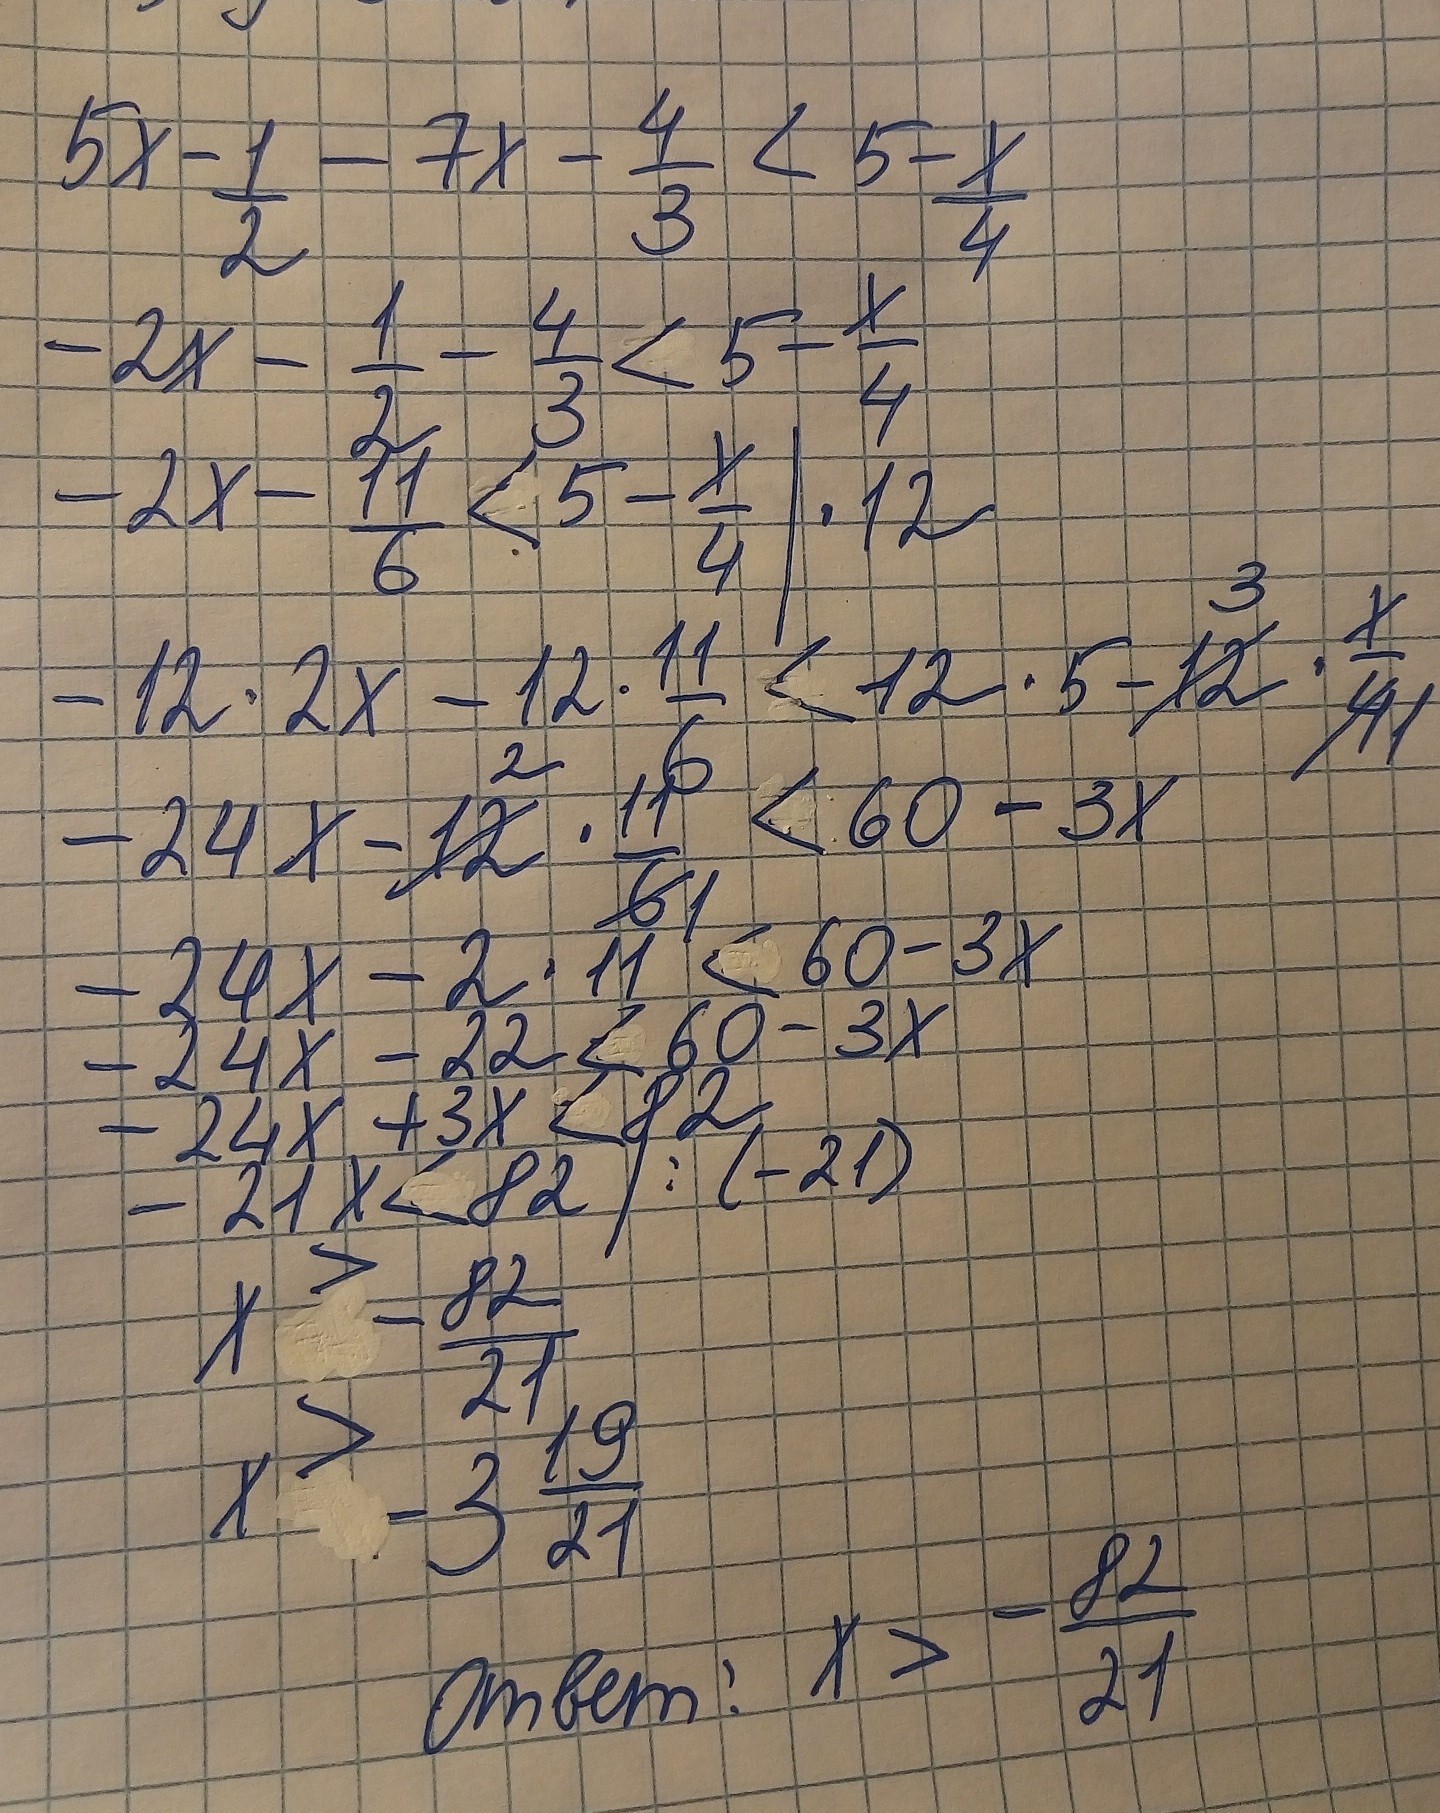 5x - 1/2 - 7x - 4/3 < 5 - x/4
-2x - 1/2 - 4/3 < 5 - x/4
-2x - 11/6 < 5 - x/4 | · 12
-12 · 2x - 12 · 11/6 < 12 · 5 - 12 3 · x/4 1
-24x - 12 2 · 11/6 1 < 60 - 3x
-24x - 2 · 11 < 60 - 3x
-24x - 22 < 60 - 3x
-24x + 3x < 82
-21x < 82 | : (-21)
x > - 82/21
x > - 3 19/21
ответ: x > - 82/21